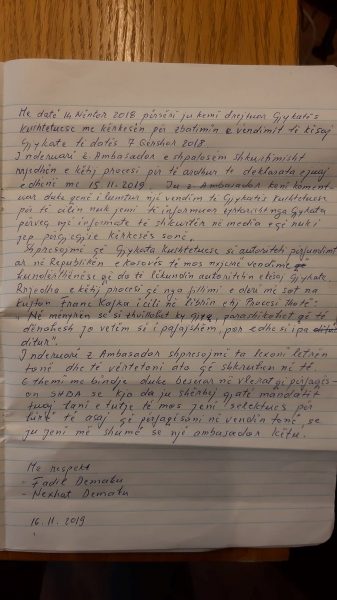 Me datë 14 Nëntor 2018 përsëri ju kemi drejtuar Gjykatës
Kushtetuese me kërkesën për zbatimin e vendimit të kësaj
Gjykate të datës 7 Qershor 2018.
I nderuari Z Ambasador e shpalosëm shkurtimisht
rrjedhën e këtij procesi për të ardhur te deklarata e juaj
e dhënë me 15.11.2019. Ju Z Ambasador keni koment-
uar duke qenë i lumtur një vendim të Gjykatës Kushtetuese
për të cilin nuk jemi të informuar zyrtarisht nga Gjykata
përveç një informate të shkurtër në media e që nuk i
jep përgjigje kërkesës sonë.
Shpresojmë që Gjykata Kushtetuese si autoriteti përfundimt
ar në Republikën e Kosovës të mos nxjerë vendime
kundërthënëse që do të lëkundin autoritetin e kësaj Gjykate.
Rrjedha e këtij procesi që nga fillimi e deri më sot na
kujton Franc Kafka i cili në librin e tij Procesi thotë:
"Në mënyrën se si zhvillohet ky gjyq, parashikohet që të
dënohesh jo vetëm si i pafajshëm, por edhe si i pa
ditur".
I nderuari Z Ambasador shpresojmë ta lexoni letrën
tonë dhe të vërtetoni ato që shkruhen në të.
E themi me bindje duke besuar në vlerat që përfaqës-
on SHBA se kjo do ju shërbej gjatë mandatit
tuaj tani e tutje të mos jeni selektues për
të asaj që përfaqësoni në vendin tonë, se
ju jeni më shumë se një ambasador këtu.
Me respekt
- Fadil Demaku
- Nexhat Demaku
16.11.2019